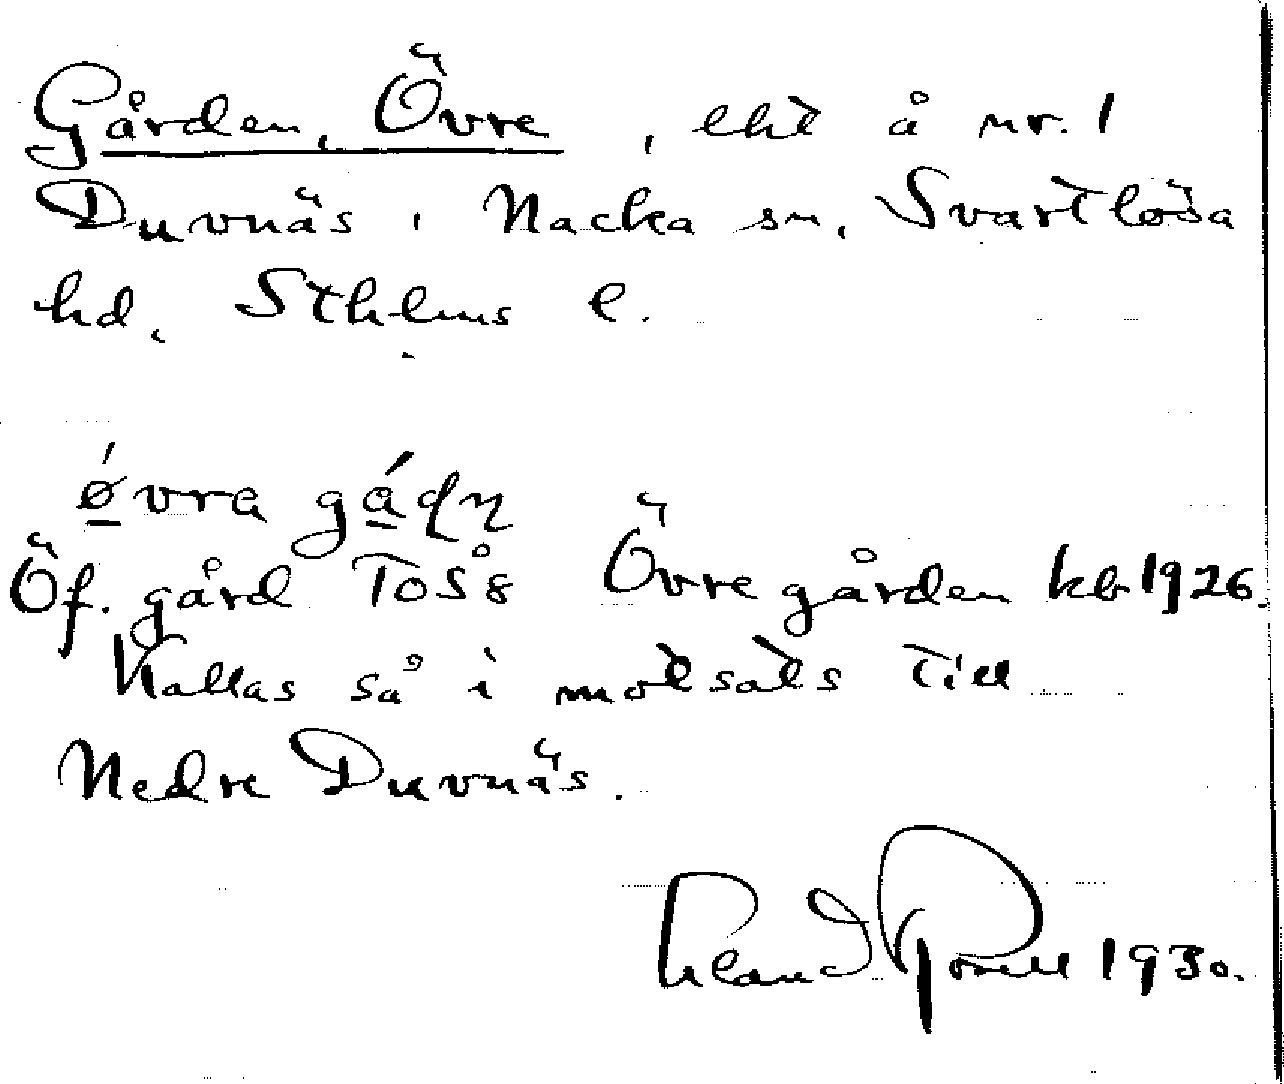 Gården, Övre, eht å nr. 1
Duvnäs, Nacka sn, Svartlösa
hd, Sthlms l.
øvra gáḍṇ
Öf. gård To58 Övre gården kb 1926.
Kallas så i motsats till
Nedre Duvnäs.
1930.